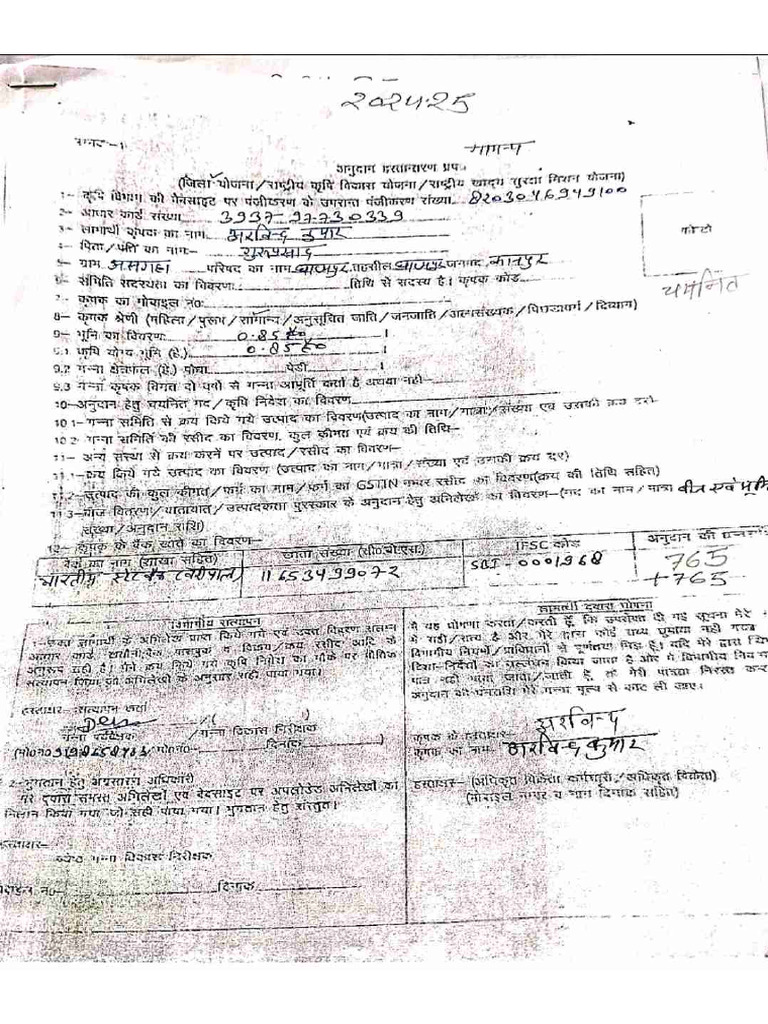 2024-25
सामान्य
अनुदान हस्तान्तरण प्रपत्र
(जिला योजना/राष्ट्रीय कृषि विकास योजना/राष्ट्रीय खाद्य सुरक्षा मिशन योजना)
1- कृषि विभाग की वेबसाइट पर पंजीकरण के उपरान्त पंजीकरण संख्या
2- आधार कार्ड संख्या
3- लाभार्थी कृषक का नाम अरविन्द कुमार
4- पिता/पति का नाम- गुरुप्रसाद
फोटो
5- ग्राम परिषद का नाम तहसील जनपद कानपुर
6- समिति सदस्यता का विवरण तिथि से सदस्य है। कृषक कोड
चयनित
7- कृषक का मोबाइल नं०
8- कृषक श्रेणी (महिला/पुरूष/सामान्य/अनुसूचित जाति/जनजाति/अल्पसंख्यक/पिछड़ावर्ग/दिव्यांग)
9- भूमि का विवरण 0.85 है०
9.1 कृषि योग्य भूमि (हे.) 0.85 है०
9.2 गन्ना क्षेत्रफल (हे.) पौधा पेडी
9.3 गन्ना कृषक विगत दो वर्षो से गन्ना आपूर्ति करता है अथवा नही-
10- अनुदान हेतु चयनित मद/कृषि निवेश का विवरण
10.1- गन्ना समिति से क्रय किये गये उत्पाद का विवरण(उत्पाद का नाम/मात्रा/संख्या एवं उसकी क्रय दर)
10.2- गन्ना समिति की रसीद का विवरण, कुल कीमत एवं क्रय की तिथि-
11- अन्य संस्था से क्रय करने पर उत्पाद/रसीद का विवरण-
11.1- क्रय किये गये उत्पाद का विवरण (उत्पाद का नाम/मात्रा/संख्या एवं उनकी क्रय दर)
11.2- उत्पाद की कुल कीमत/फर्म का नाम/फर्म का GSTIN नम्बर रसीद का विवरण(क्रय की तिथि सहित)
11.3- बीज वितरण/यातायात/उत्पादकता पुरस्कार के अनुदान हेतु अभिलेखों का विवरण-(मद का नाम/मात्रा बीज एवं भूमि
संख्या/अनुदान राशि)
12- कृषक के बैंक खाते का विवरण-
बैंक का नाम (शाखा सहित) खाता संख्या (सी०बी०एस०) IFSC कोड अनुदान की
भारतीय स्टेट बैंक 11653499072 SBI-0001968 765
+765
विभागीय सत्यापन
1- उक्त लाभार्थी के अभिलेख प्राप्त किये गये एवं उक्त विवरण संलग्न
आधार कार्ड, खतौनी, बैंक पासबुक व विक्रय/क्रय रसीद आदि के
अनुरूप सही है। मैने क्रय किये गये कृषि निवेश का मौके पर भौतिक
सत्यापन किया जो अभिलेखों के अनुसार सही पाया गया।
हस्ताक्षर- सत्यापन कर्ता
गन्ना पर्यवेक्षक /गन्ना विकास निरीक्षक
(मो०न० /मो०न० दिनांक
2- भुगतान हेतु अग्रसारण अधिकारी
मेरे द्वारा समस्त अभिलेखों एवं वेबसाइट पर अपलोडेड अभिलेखों का
मिलान किया गया जो सही पाया गया। भुगतान हेतु संस्तुत।
हस्ताक्षर-
ज्येष्ठ गन्ना विकास निरीक्षक
मोबाइल न० दिनांक
लाभार्थी द्वारा घोषणा
मै यह घोषणा करता/करती हूँ कि उपरोक्त दी गई सूचना मेरे
में सही/सत्य है और मेरे द्वारा कोई तथ्य छुपाया नही गया
विभागीय नियमों/प्राविधानों से पूर्णतया भिज्ञ हूँ। यदि मेरे द्वारा
दिशा-निर्देशों का उल्लंघन किया जाता है और मै विभागीय
पात्र नही पाया जाता/जाती हूँ, तो मेरी पात्रता निरस्त कर
अनुदान की धनराशि मेरे गन्ना मूल्य से काट ली जाए।
अरविन्द
कृषक के हस्ताक्षर
कृषक का नाम अरविन्द कुमार
हस्ताक्षर- (अधिकृत विक्रेता कर्मचारी/अधिकृत विक्रेता)
(मोबाइल नम्बर व नाम दिनांक सहित)